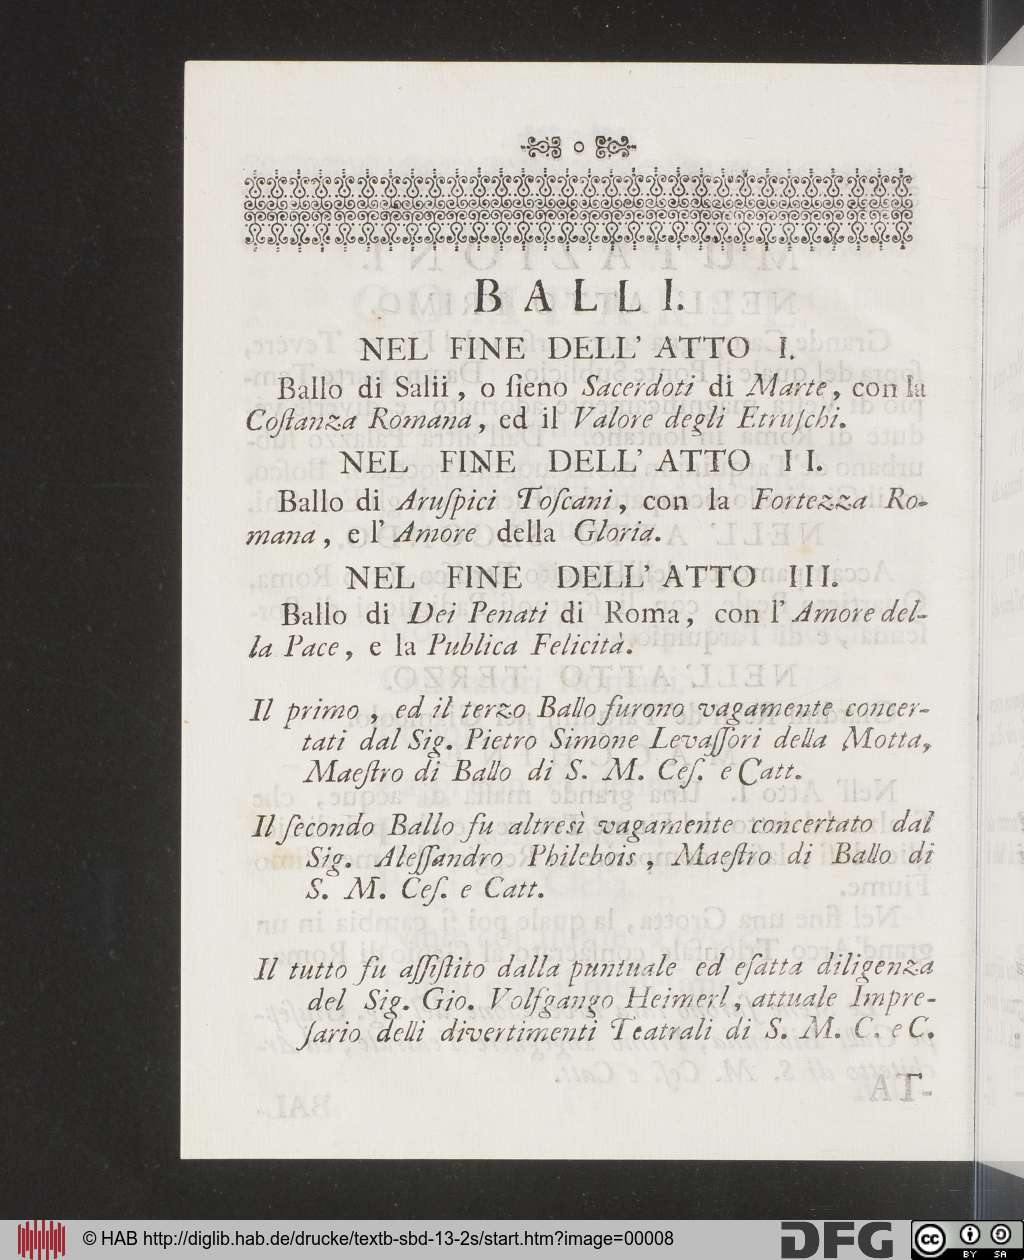 BALLI.
NEL FINE DELL' ATTO I.
Ballo di Salii, o ſieno Sacerdoti di Marte, con la
Coſtanza Romana, ed il Valore degli Etruſchi.
NEL FINE DELL' ATTO II.
Ballo di Aruſpici Toſcani, con la Fortezza Ro-
mana, e l' Amore della Gloria.
NEL FINE DELL' ATTO III.
Ballo di Dei Penati di Roma, con l' Amore del-
la Pace, e la Publica Felicità.
Il primo, ed il terzo Ballo furono vagamente concer-
tati dal Sig. Pietro Simone Levaſſori della Motta,
Maeſtro di Ballo di S. M. Ceſ. e Catt.
Il ſecondo Ballo fu altresì vagamente concertato dal
Sig. Aleſſandro Philebois, Maeſtro di Ballo di
S. M. Ceſ. e Catt.
Il tutto fu aſſiſtito dalla puntuale ed eſatta diligenza
del Sig. Gio. Volfgango Heimerl, attuale Impre-
ſario delli divertimenti Teatrali di S. M. C. e C.
AT-
© HAB http://diglib.hab.de/drucke/textb-sbd-13-2s/start.htm?image=00008
DFG
cc BY SA